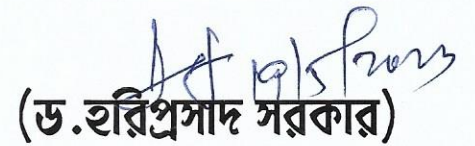 (ড.হরিপ্রসাদ সরকার)